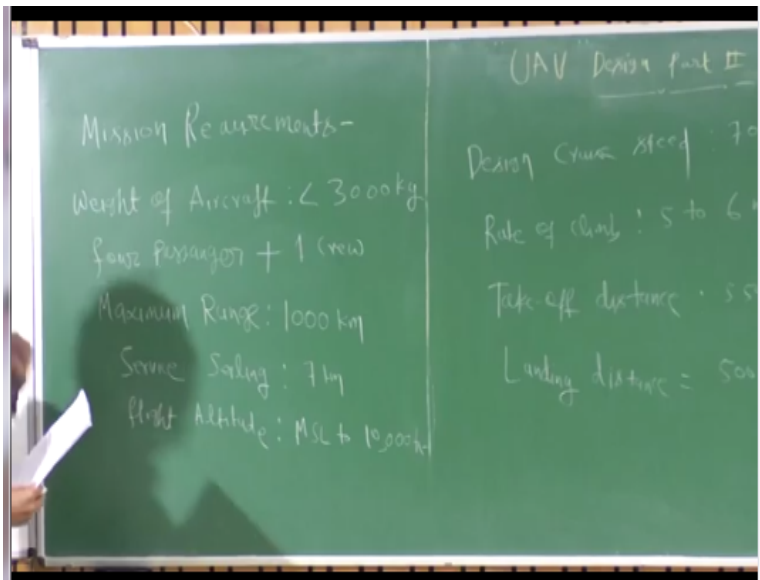 Mission Requrements-
Weight of Aircraft : < 3000kg
four passanger + 1 Crew
Maximum Range : 1000 km
Service : 7 km
flight Altitude : MSL to 10,000
"UAV" Design Part II
Design Cruise speed : 70
Rate of climb : 5 to 6
Take-off distance : 55
Landing distance = 500